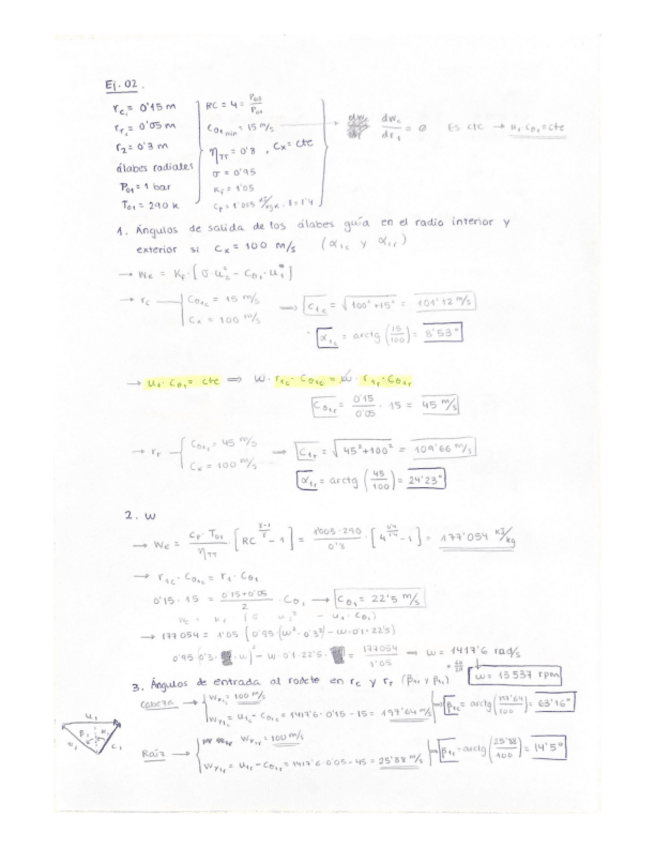 Ej. 02.
rc₁ = 0'15 m
rr₁ = 0'05 m
r₂ = 0'3 m
álabes radiales
P₀₁ = 1 bar
T₀₁ = 290 K
RC = 4 = P₀₃/P₀₁
Cθ₁ min = 15 m/s
ηTT = 0'8 , Cx = cte
σ = 0'95
KF = 1'05
Cp = 1'005 KJ/kgK , γ = 1'4
→ dWc/dr₁ = 0 Es cte → u₁·Cθ₁ = cte
1. Ángulos de salida de los álabes guía en el radio interior y
exterior si Cx = 100 m/s (α₁c y α₁r)
→ Wc = KF·[σ·u₂² - Cθ₁·u₁]
→ rc Cθ₁c = 15 m/s
Cx = 100 m/s
⟹ C₁c = √(100² + 15²) = 101'12 m/s
α₁c = arctg (15/100) = 8'53°
→ u₁·Cθ₁ = cte ⟹ w·r₁c·Cθ₁c = w·r₁r·Cθ₁r
Cθ₁r = 0'15/0'05 · 15 = 45 m/s
→ rr Cθ₁r = 45 m/s
Cx = 100 m/s
⟹ C₁r = √(45² + 100²) = 109'66 m/s
α₁r = arctg (45/100) = 24'23°
2. w
→ Wc = Cp·T₀₁/ηTT · [RC^((γ-1)/γ) - 1] = 1'005·290/0'8 · [4^(0'4/1'4) - 1] = 177'054 KJ/kg
→ r₁c·Cθ₁c = r₁·Cθ₁
0'15·15 = (0'15+0'05)/2 · Cθ₁ → Cθ₁ = 22'5 m/s
→ 177054 = 1'05 (0'95·(w²·0'3²) - w·0'1·22'5)
= 177054/1'05 ⟹ w = 1417'6 rad/s
w = 13537 rpm
3. Ángulos de entrada al rodete en rc y rr (β₁c y β₁r)
Cabeza → Wx₁c = 100 m/s
Wy₁c = u₁c - Cθ₁c = 1417'6·0'15 - 15 = 197'64 m/s
β₁c = arctg (197'64/100) = 63'16°
Raíz → Wx₁r = 100 m/s
Wy₁r = u₁r - Cθ₁r = 1417'6·0'05 - 45 = 25'88 m/s
β₁r = arctg (25'88/100) = 14'5°
u₁
β₁
c₁